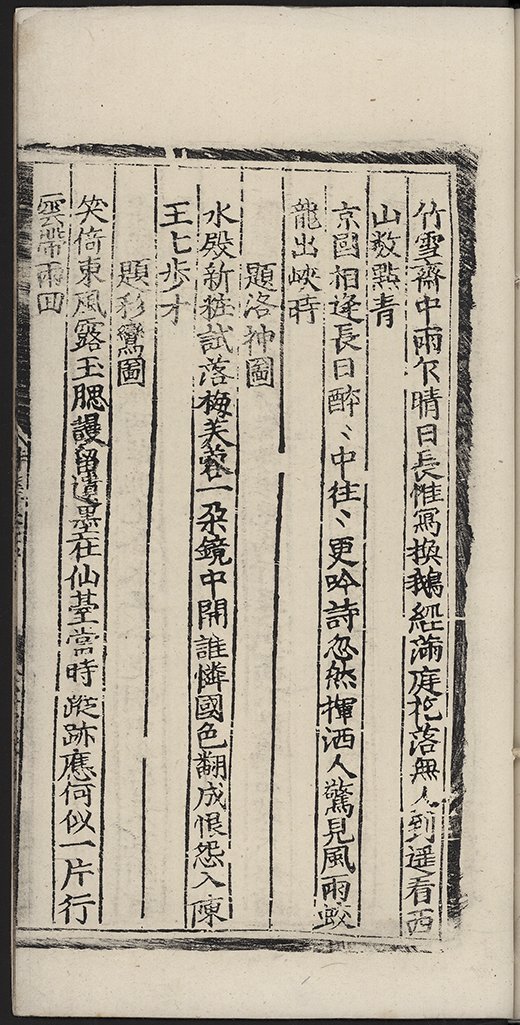 竹雪齋中雨乍晴日長惟寫換鵝經滿庭花落無人到遥看西
山数點青
京國相逢長日醉〻中往〻更吟詩忽然揮洒人驚見風雨蛟
龍出峽時
題洛神圖
水殿新粧試落梅芙蓉一朶鏡中開誰憐國色翻成恨怨入陳
王七步才
題彩鸞圖
笑倚東風露玉腮謾留遺墨在仙臺當時蹤跡應何似一片行
雲帶雨回